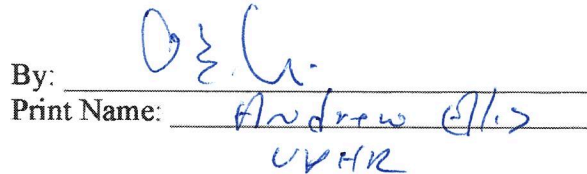 By:
Print Name: Andrew Ellis
VPHR